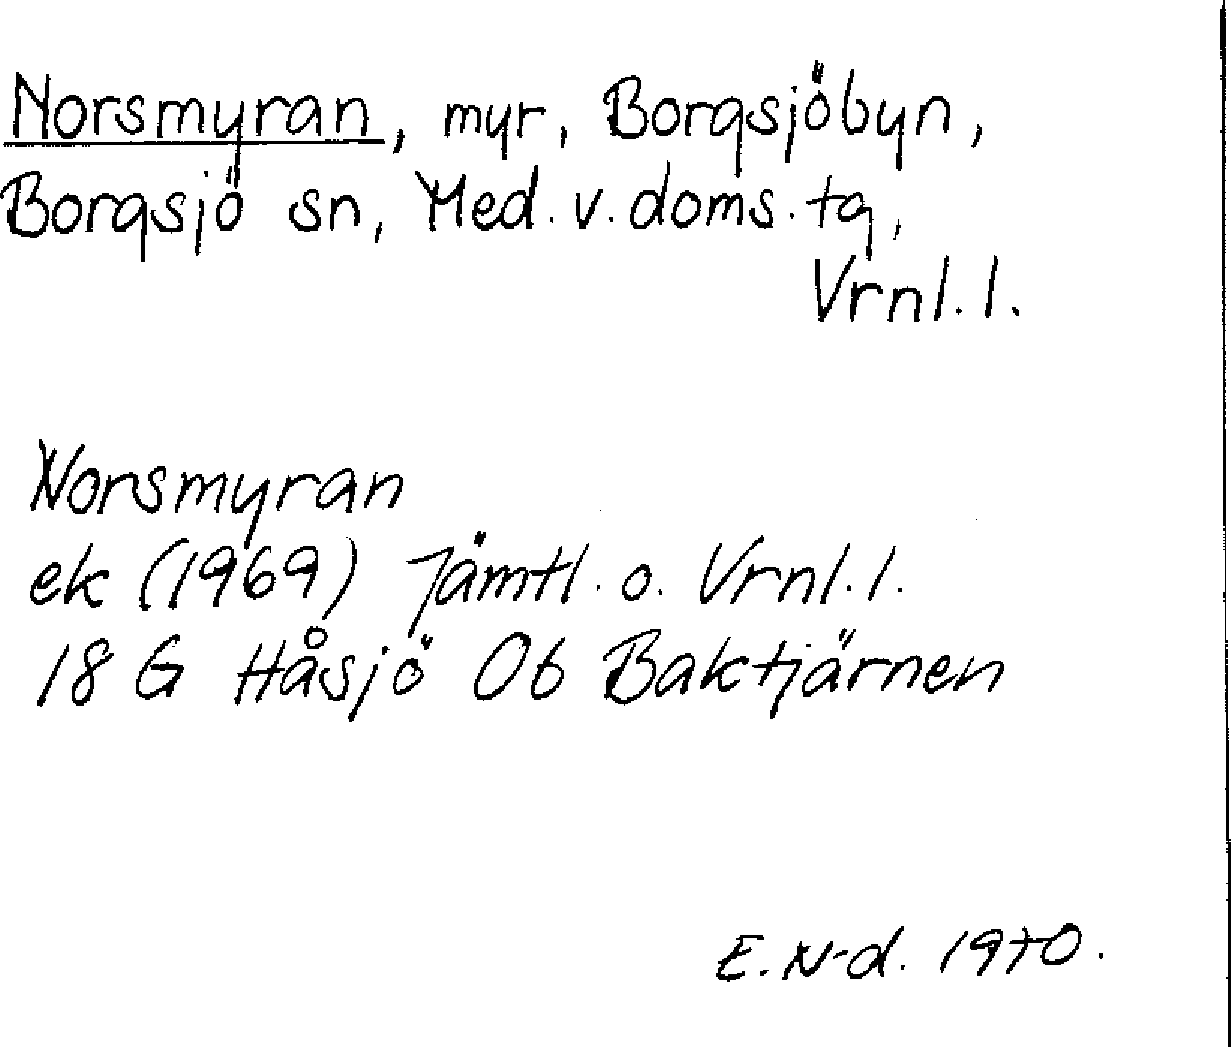 Norsmyran, myr, Borgsjöbyn,
Borgsjö sn, Med. v. doms. tg,
Vrnl. l.
Norsmyran
ek (1969) Jämtl. o. Vrnl. l.
18 G Håsjö 0b Baktjärnen
E. N-d. 1970.